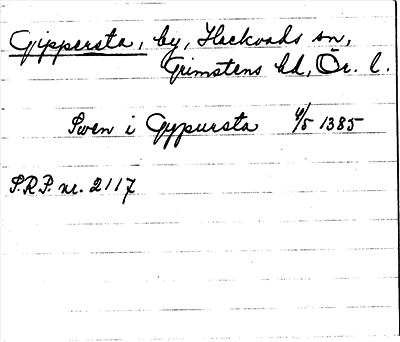 Gippersta, by, Hackvads sn,
Grimstens hd, Ör. l.
Swen i Gypursta 4/5 1385
S.R.P. nr. 2117